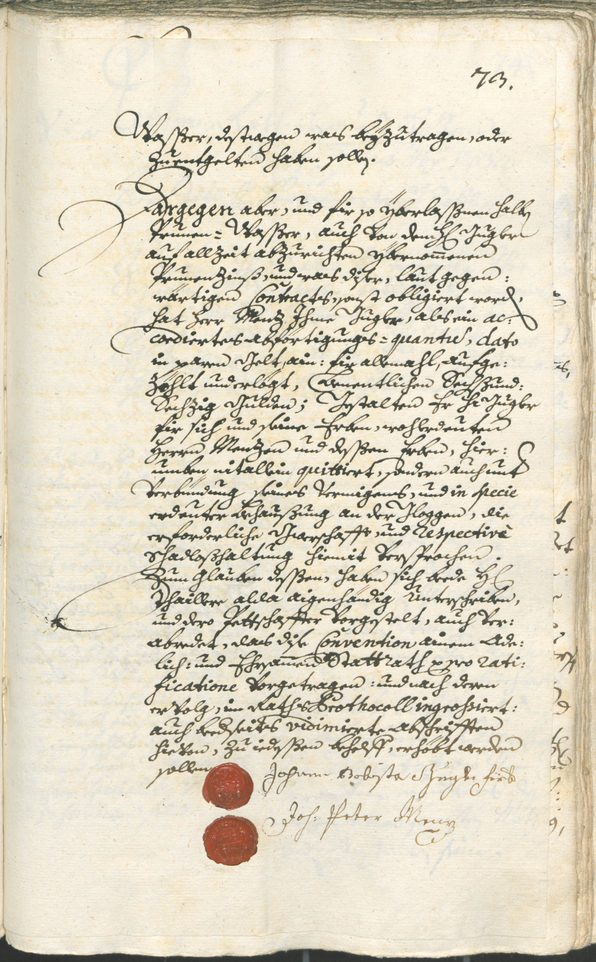 73.
Wasser, destwegen was beyzutragen, oder
zuentgelten haben solle.
Dargegen aber, und für so yberlassnen halb
Prunen=Wasser, auch von dem H: Zugler
auf all Zeit abzurichten ybernommenen
Prunenzinß, und was diser, laut gegen:
wärtigen Contractes, sonst obligiert word,
hat Herr Menz Ihme Zugler, als ein ac:
cordiertes abförtigungs=quantum, dato
in paren Gelt, ain: für allemahl, aufge:
zöhlt und erlögt, Benentlichen Sechzund:
Sechzig Gulden; Gestalten Er H: Zugler
für sich und seine Erben, wohlerdeuten
Herrn Menzen und dessen Erben, hier:
umben nit allein quittiert, sondern auch mit
Verbündung seines Vermögens, und in specie
erdeuter behaußung an der Floggen, die
erforderliche Gwerschafft, und respective
Schadloßhaltung hiemit versprochen.
Zum Glauben dessen, haben sich bede H:
Thaillere alda aigenhändig unterschriben,
und dero Pettschaffter vorgestelt, auch ver:
abredet, das dise Convention ainem Ade:
lich: und Ehrsamen Stattrath pro rati:
ficatione vorgetragen: und nach deren
ervolg, in Raths Prothocoll ingrossiert:
auch bedseits vidimierte abschrifften
hievon, zu iedessen behelff, erhöbt werden
sollen.
Johann Babtista Zugler
Joh: Peter Menz